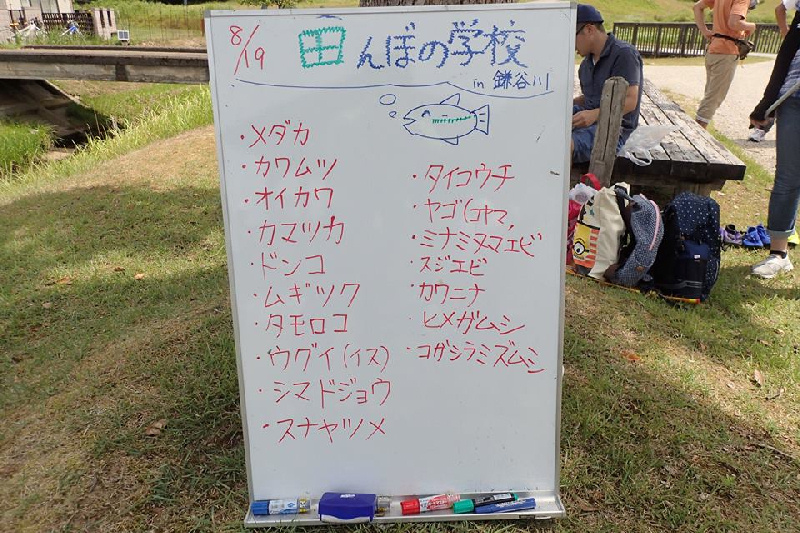 8/19
田んぼの学校
in 鎌谷川
・メダカ
・カワムツ
・オイカワ
・カマツカ
・ドンコ
・ムギツク
・タモロコ
・ウグイ(イス)
・シマドジョウ
・スナヤツメ
・タイコウチ
・ヤゴ(コオニヤマ,
・ミナミヌマエビ
・スジエビ
・カワニナ
・ヒメガムシ
・コガシラミズムシ